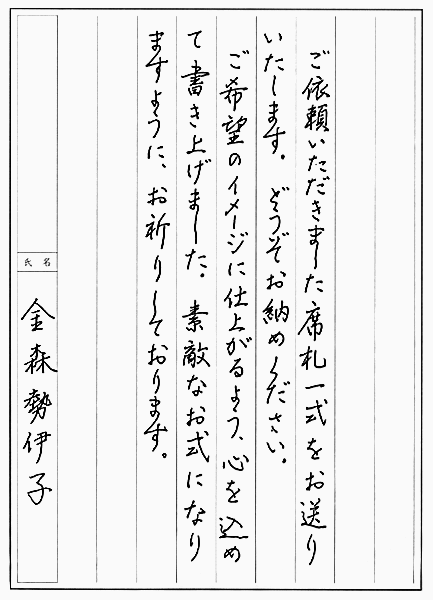 ご依頼いただきました席札一式をお送り
いたします。どうぞお納めください。
ご希望のイメージに仕上がるよう、心を込め
て書き上げました。素敵なお式になり
ますように、お祈りしております。
氏名
金森勢伊子